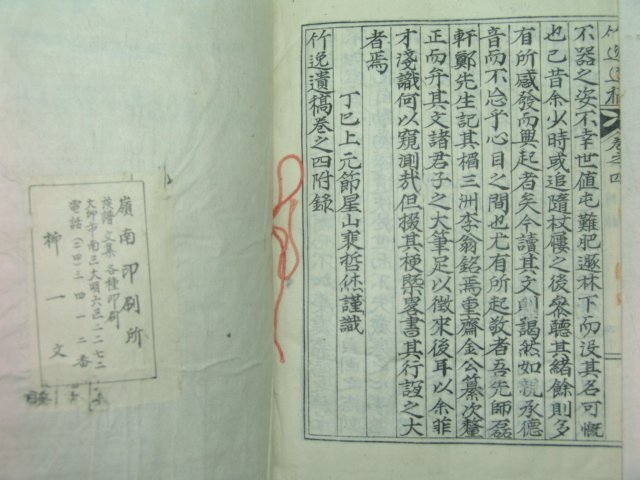 竹逸遺稿 卷之四
不器之姿不幸世值屯難肥遯林下而没其名可慨
也已昔余少時或追隨杖屨之後參聽其緖餘則多
有所感發而興起者矣今讀其文則藹然如親承德
音而不忘乎心目之間也尤有所起敬者吾先師磊
軒鄭先生記其楣三洲李翁銘焉重齋金公纂次釐
正而弁其文諸君子之大筆足以徵來後耳以余菲
才淺識何以窺測哉但掇其梗槩畧書其行誼之大
者焉
丁巳上元節星山裵哲烋謹識
竹逸遺稿卷之四附錄
嶺南印刷所
族譜·文集 各種印刷
大邱市南三大明六三二二七二
電話(三四)三四一二番
柳一文